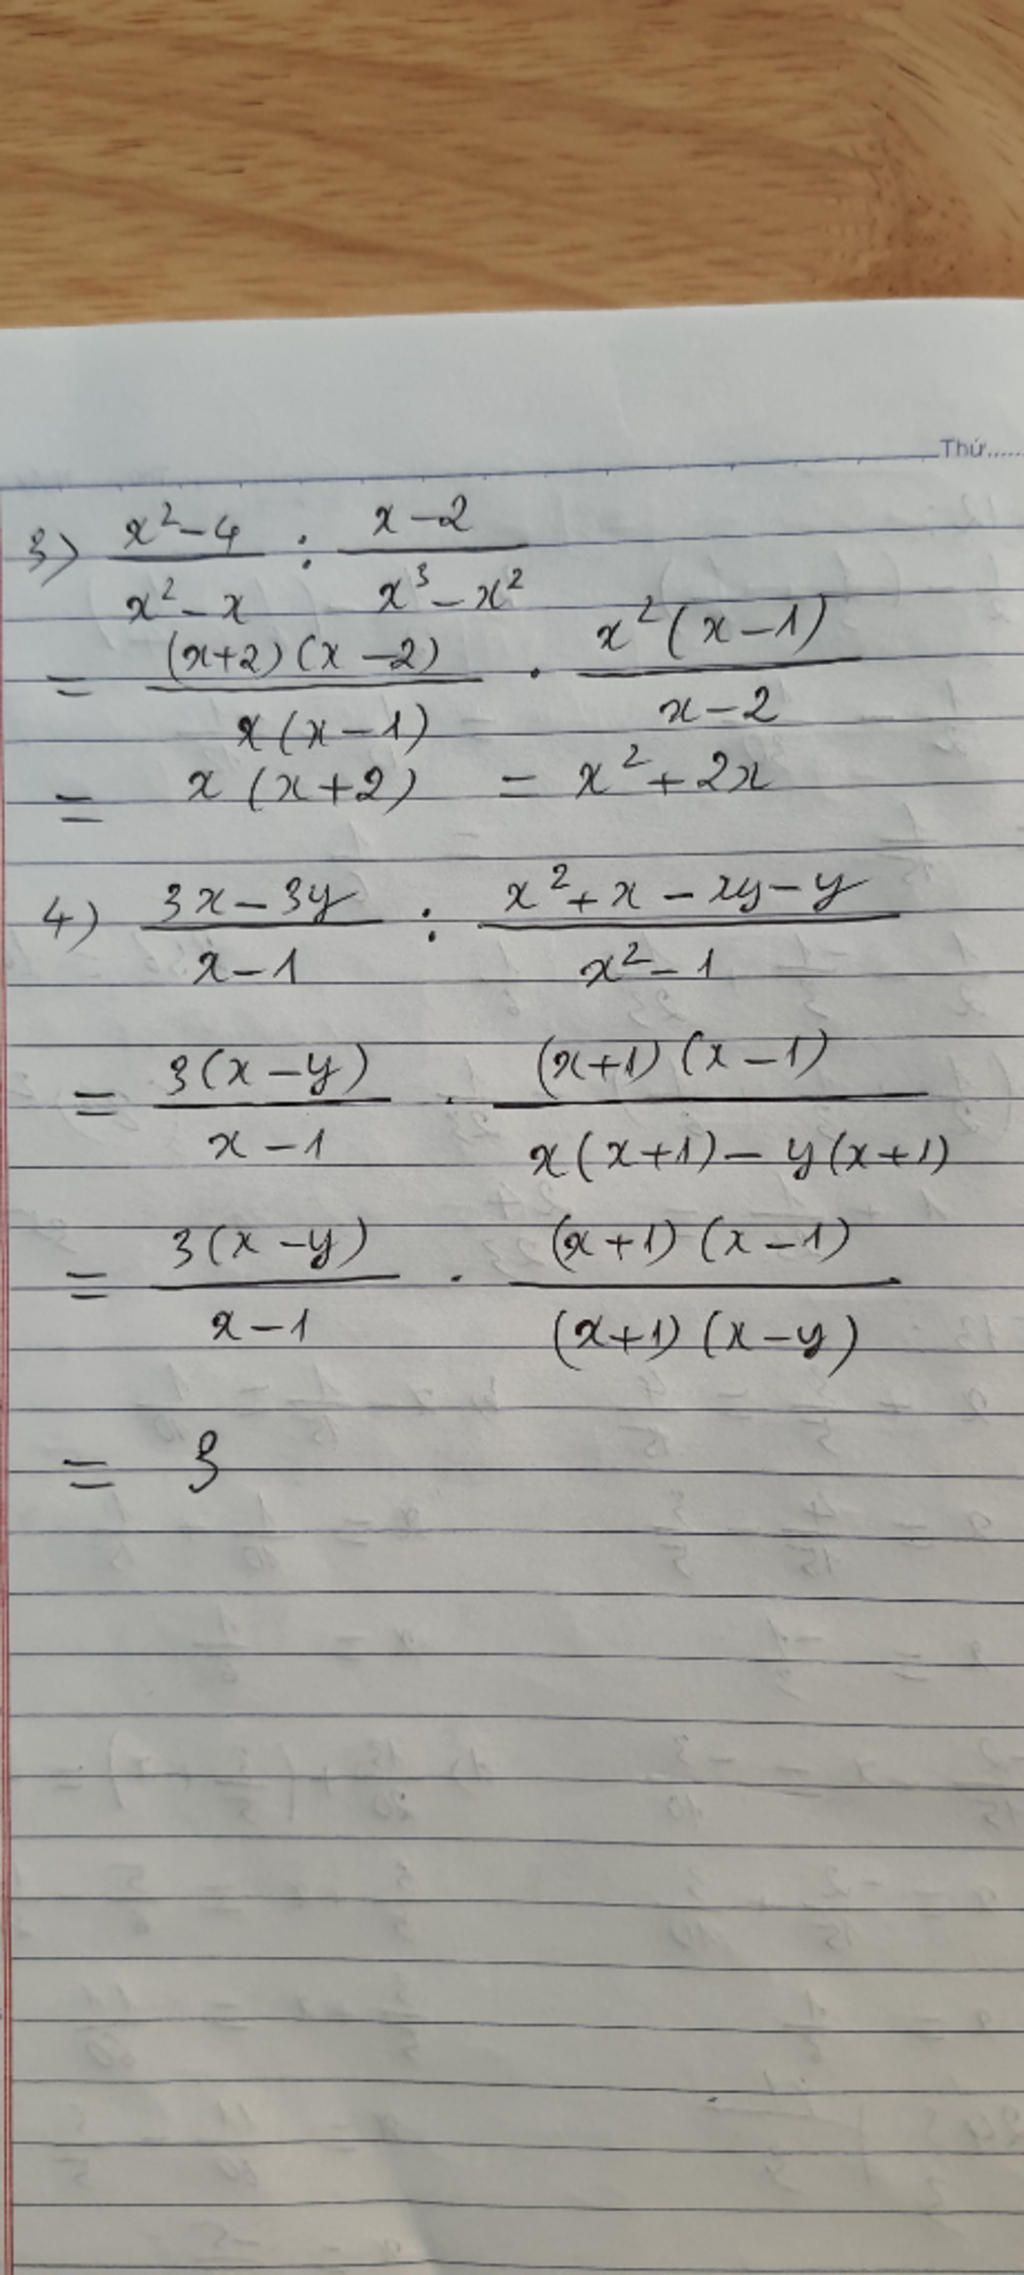 Thứ......
3) (x²-4)/(x²-x) : (x-2)/(x³-x²)
= ((x+2)(x-2))/(x(x-1)) . (x²(x-1))/(x-2)
= x(x+2) = x²+2x
4) (3x-3y)/(x-1) : (x²+x-xy-y)/(x²-1)
= (3(x-y))/(x-1) . ((x+1)(x-1))/(x(x+1)-y(x+1))
= (3(x-y))/(x-1) . ((x+1)(x-1))/((x+1)(x-y))
= 3